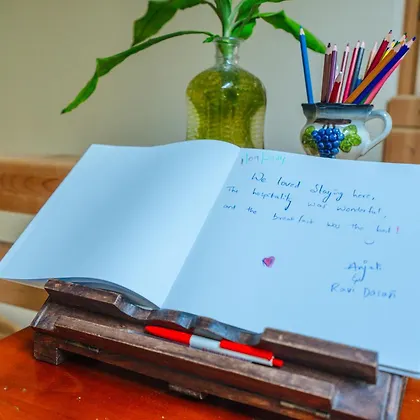 We loved staying here,
The hospitality was wonderful,
and the breakfast was the best!
Anjali
&
Ravi